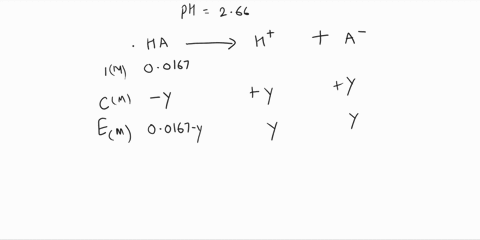 PH = 2.66
. HA → H⁺ + A⁻
I(M) 0.0167
C(M) -y +y +y
E(M) 0.0167-y y y